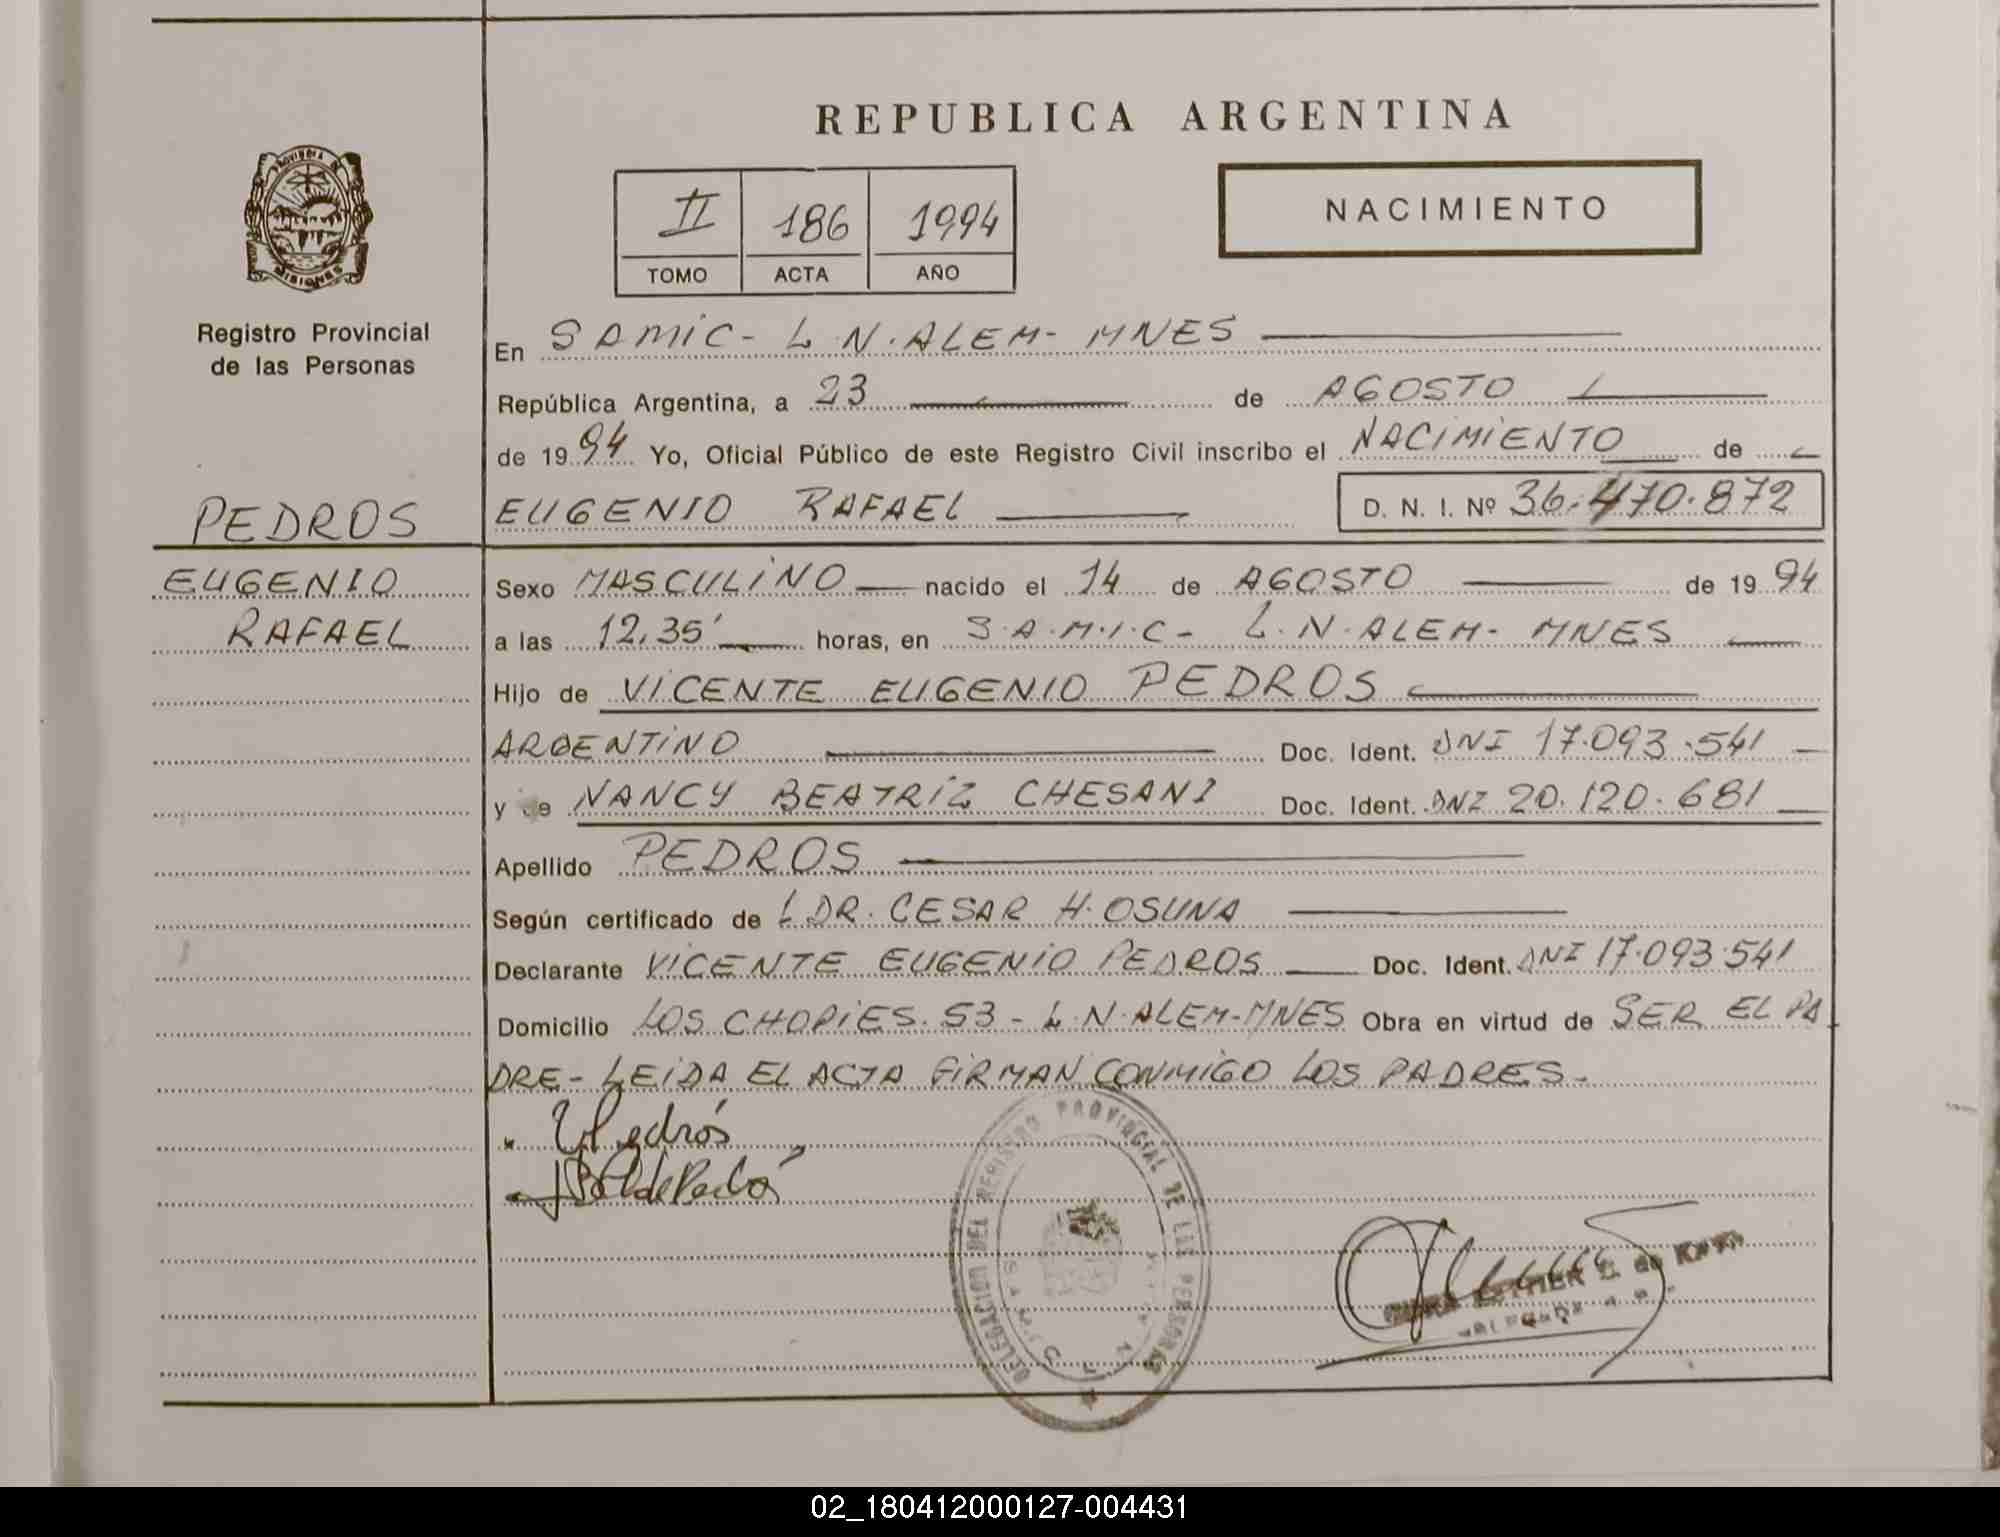 REPUBLICA ARGENTINA
PROVINCIA DE
MISIONES
Registro Provincial
de las Personas
II 186 1994
TOMO ACTA AÑO
NACIMIENTO
En SAMIC - L.N.ALEM- MNES
República Argentina, a 23 de AGOSTO
de 1994 Yo, Oficial Público de este Registro Civil inscribo el NACIMIENTO de
PEDROS
EUGENIO RAFAEL D. N. I. Nº 36.470.872
EUGENIO
RAFAEL
Sexo MASCULINO nacido el 14 de AGOSTO de 1994
a las 12,35' horas, en S.A.M.I.C - L.N.ALEM- MNES
Hijo de VICENTE EUGENIO PEDROS
ARGENTINO Doc. Ident. DNI 17.093.541
y de NANCY BEATRIZ CHESANI Doc. Ident. DNI 20.120.681
Apellido PEDROS
Según certificado de DR. CESAR H. OSUNA
Declarante VICENTE EUGENIO PEDROS Doc. Ident. DNI 17.093.541
Domicilio LOS CHOPIES 53 - L.N.ALEM-MNES Obra en virtud de SER EL PA
DRE - LEIDA EL ACTA FIRMAN CONMIGO LOS PADRES.
DELEGACION DEL REGISTRO PROVINCIAL DE LAS PERSONAS
ESTHER de
02_180412000127-004431